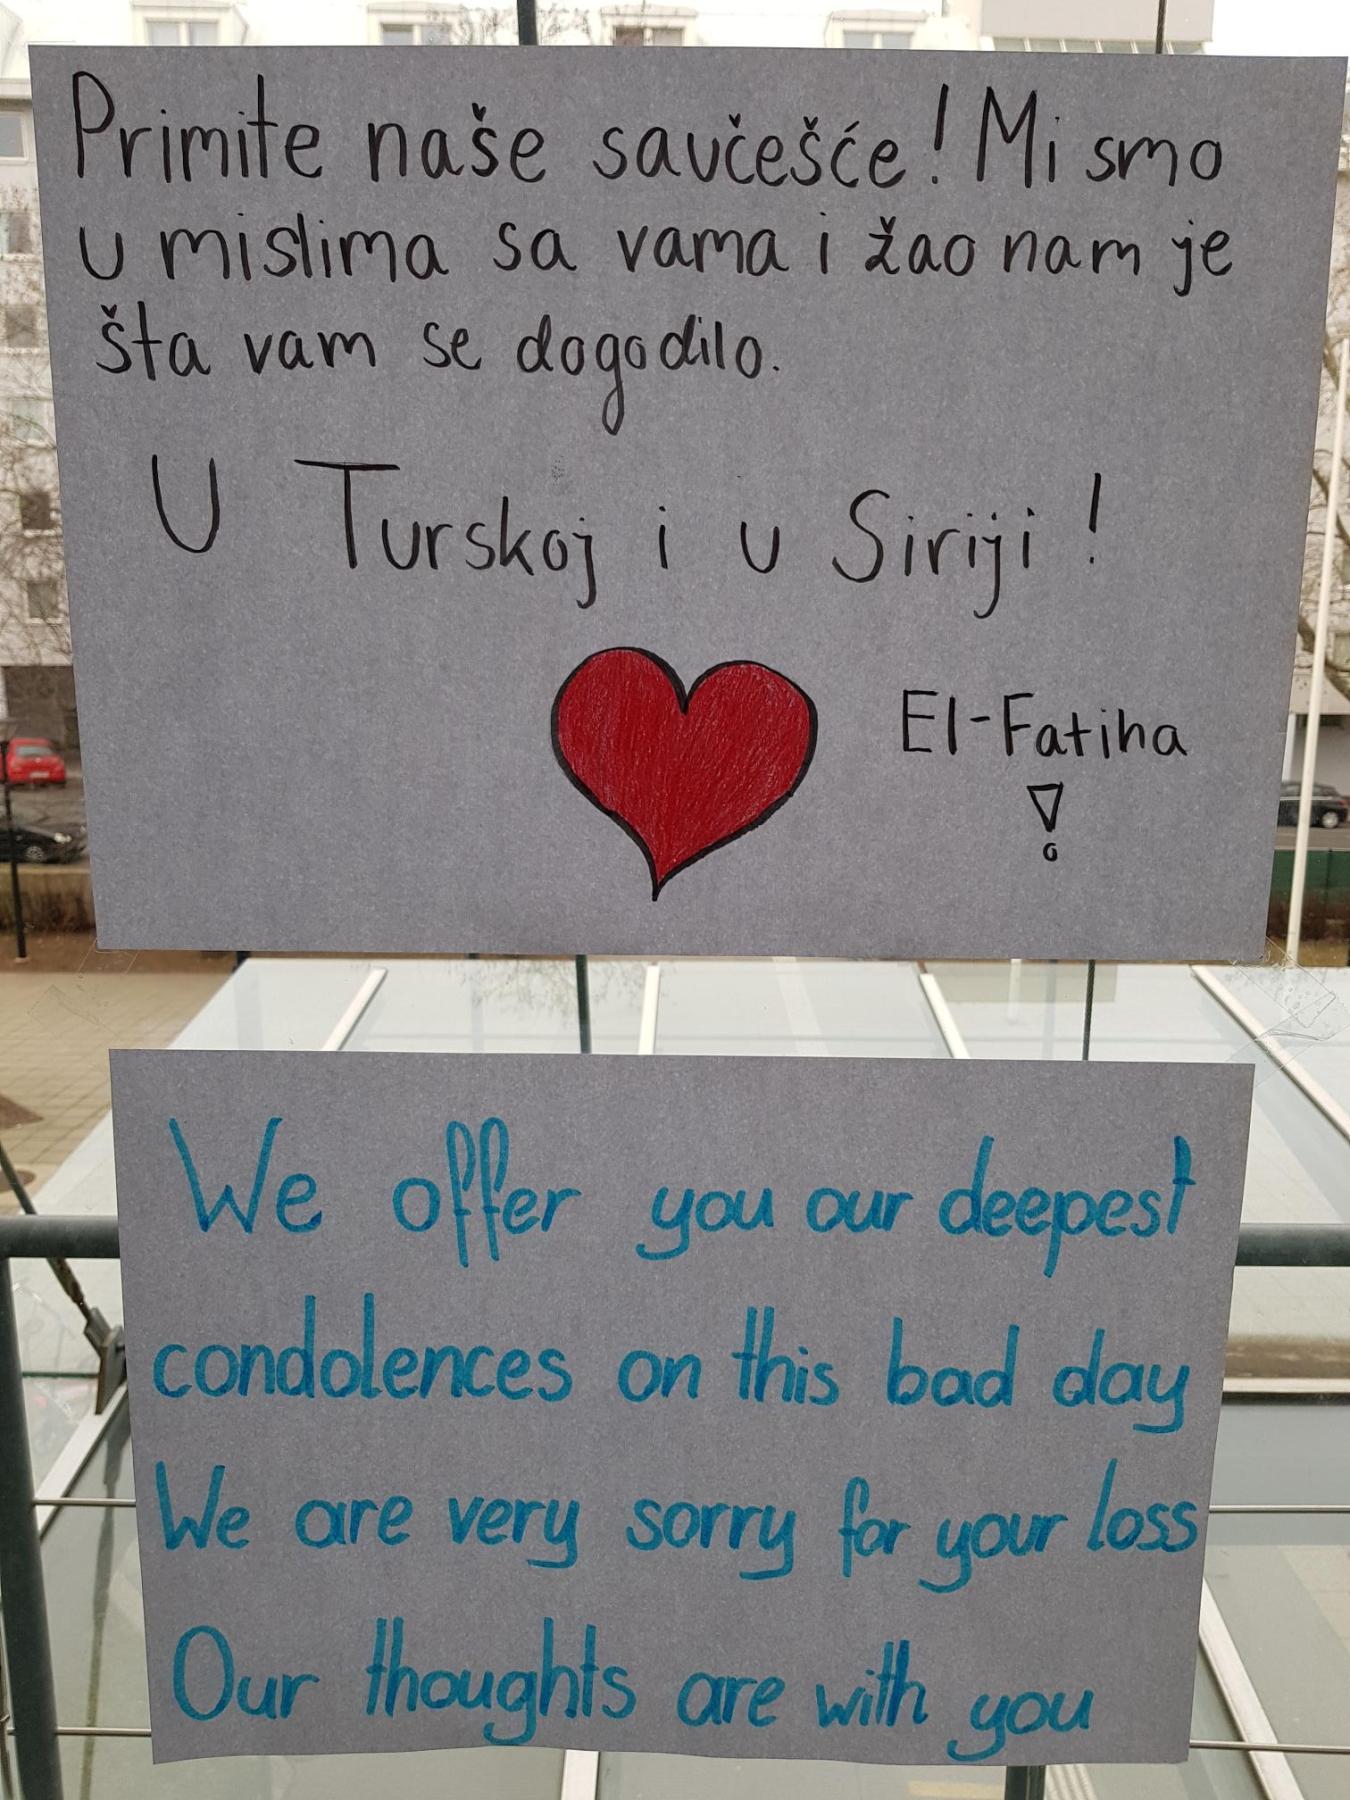 Primite naše savčešće! Mi smo
u mislima sa vama i žao nam je
šta vam se dogodilo.
U Turskoj i u Siriji!
El-Fatiha
!
We offer you our deepest
condolences on this bad day
We are very sorry for your loss
Our thoughts are with you